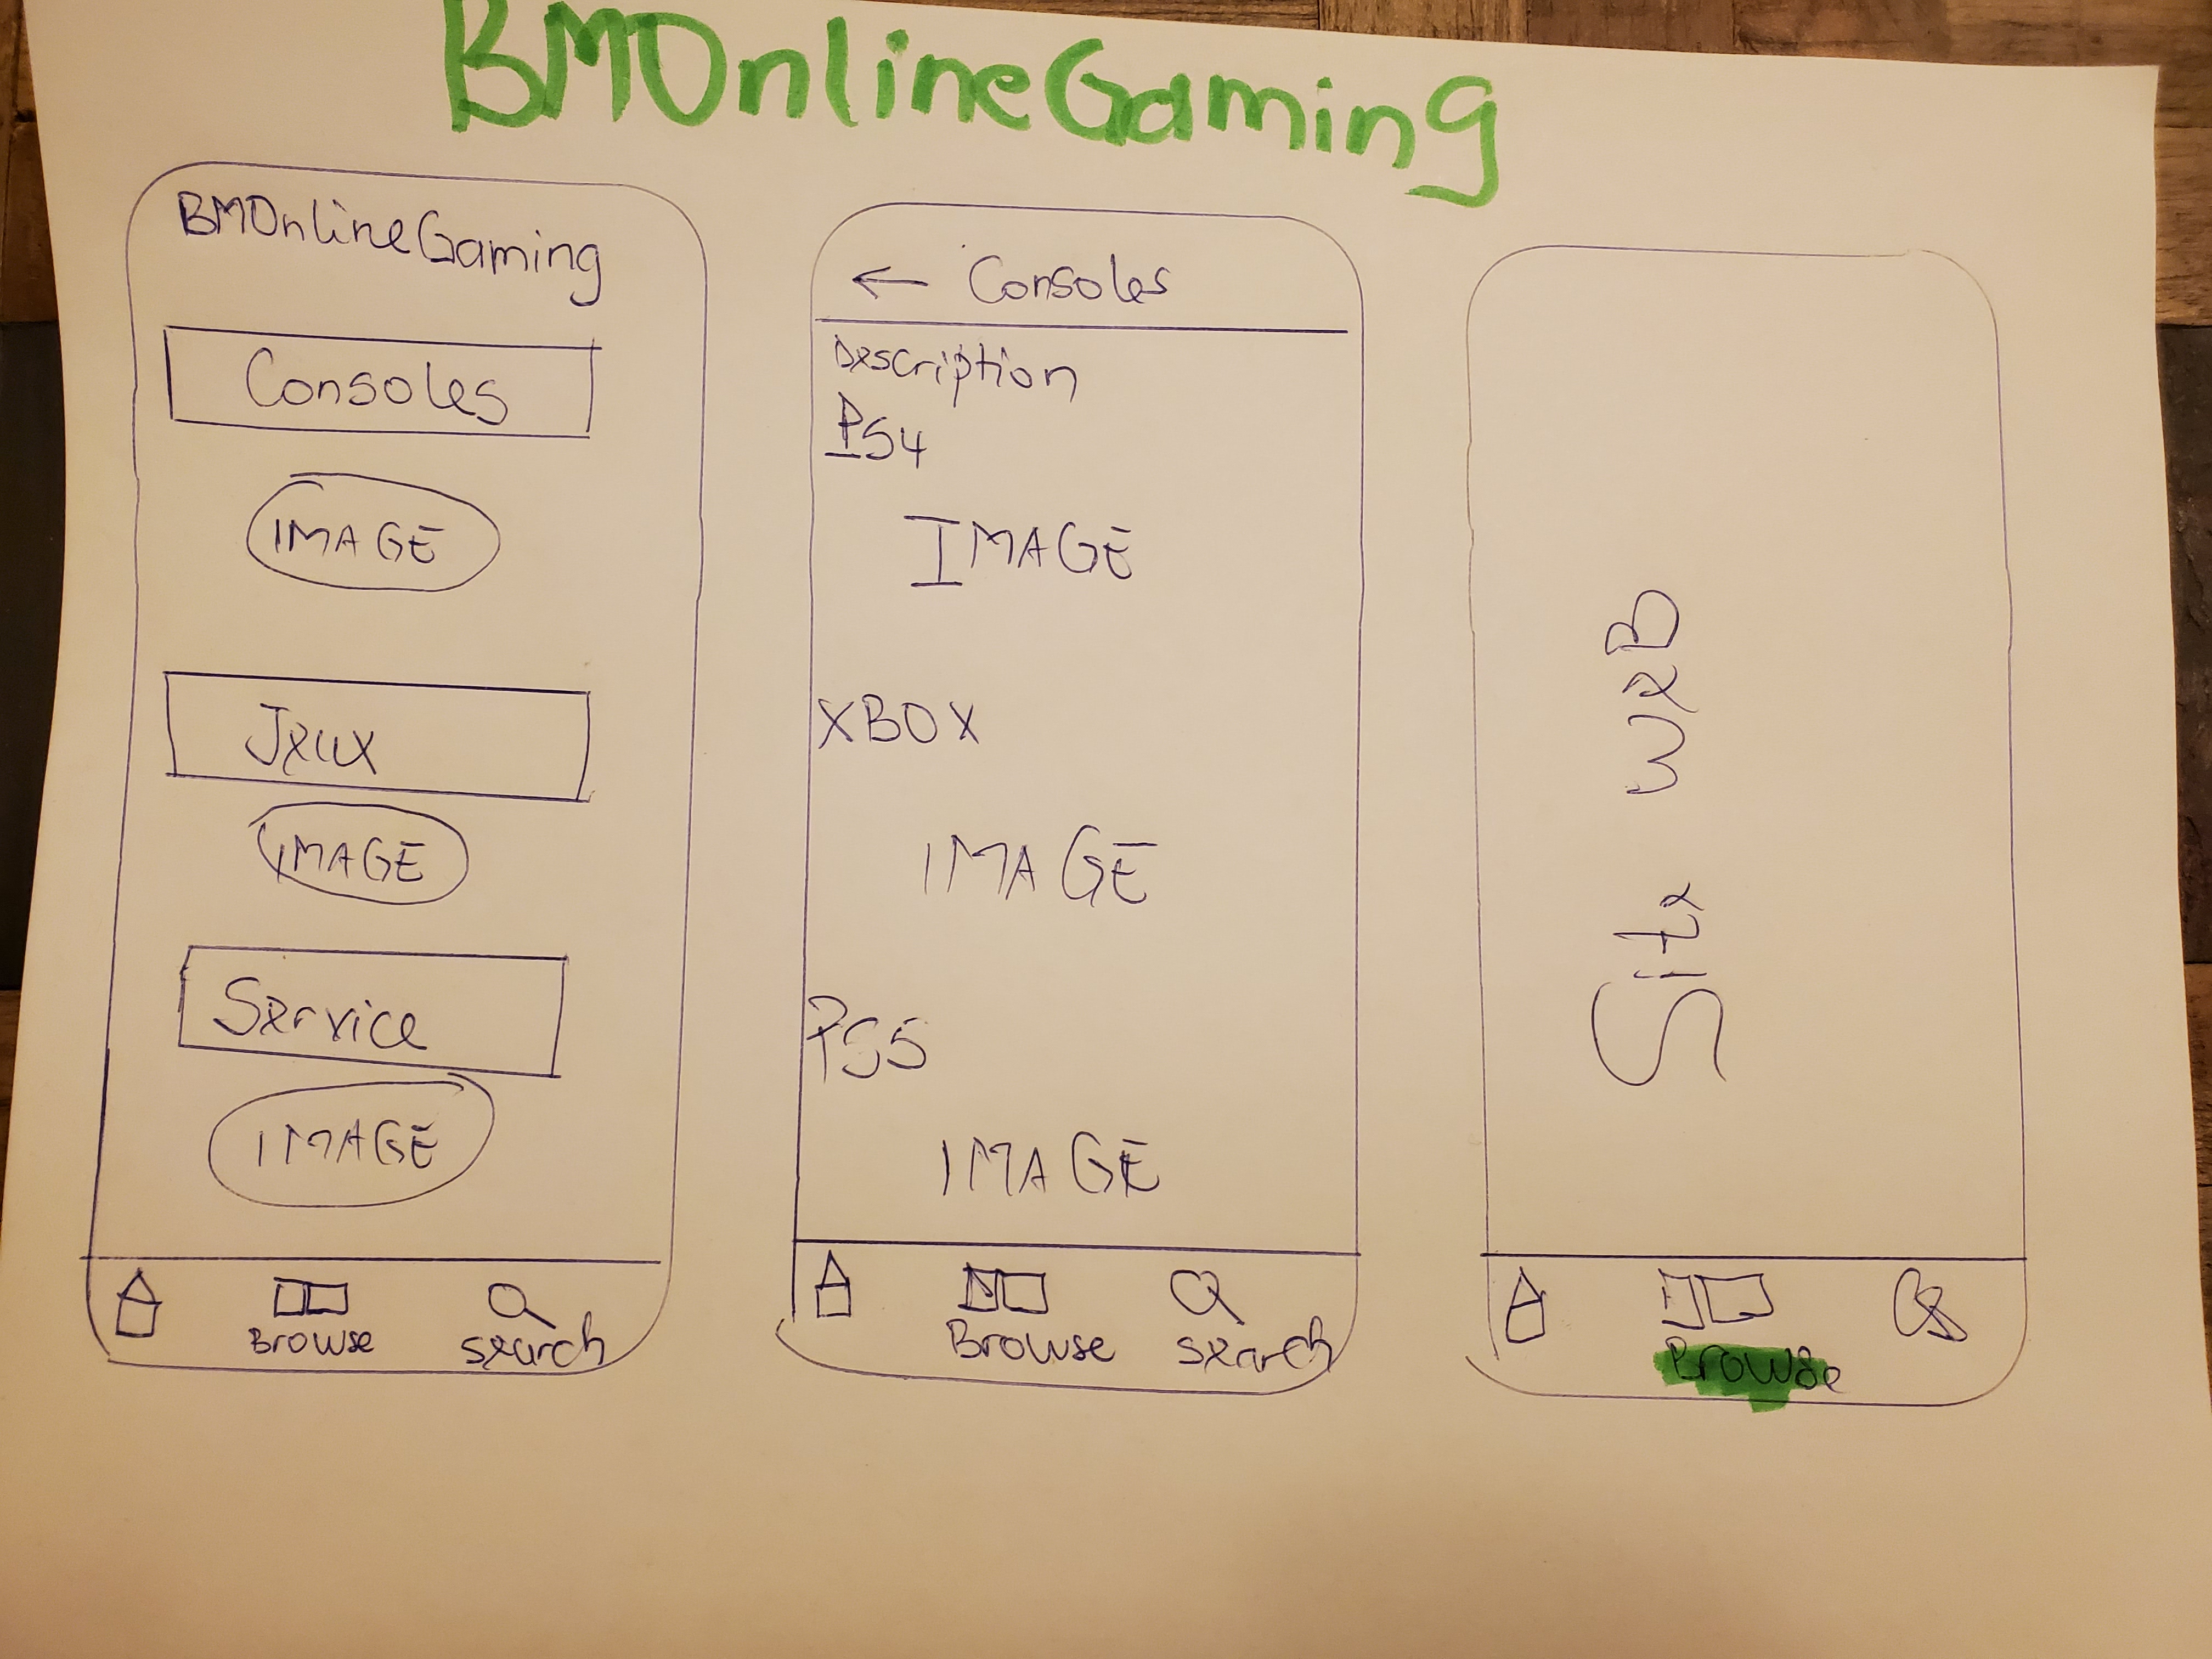 BMOnlineGaming
BMOnlineGaming
Consoles
IMAGE
Jeux
IMAGE
Service
IMAGE
Browse
search
← Consoles
Description
PS4
IMAGE
XBOX
IMAGE
PS5
IMAGE
Browse
search
Site weB
Browse